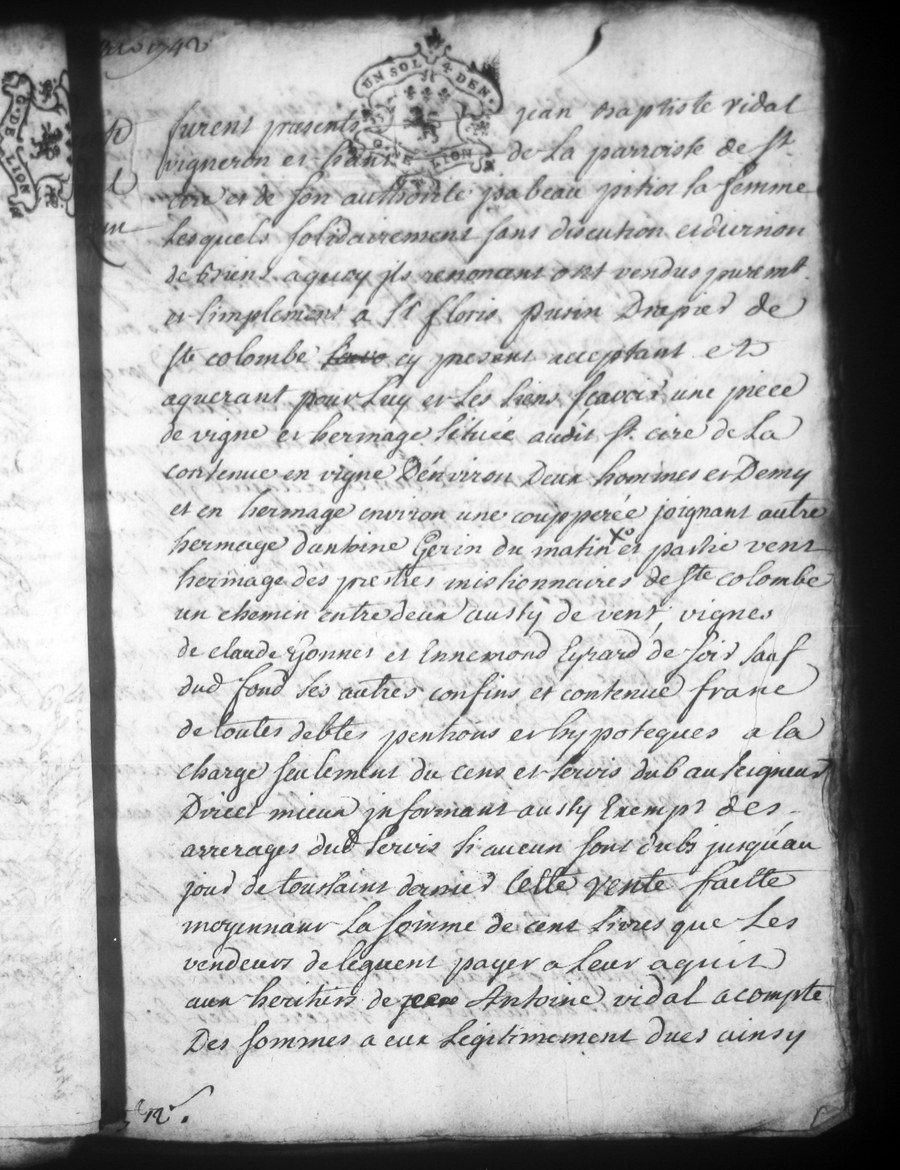 1742
UN SOL 4 DEN.
G. DE LION
furent presents jean Baptiste vidal
vigneron et habit de la parroisse de st
cire et de son authorité isabeau pitiot sa femme
Lesquels solidairement sans discution et division
de biens aquoy ils renoncent ont vendus puremt
et simplement a sr floris purin Drapier de
ste colombe cy present acceptant et
aquerant pour Luy et Les siens sçavoir une piece
de vigne et hermage située audit st. cire de La
contenue en vigne D'environ Deux hommes et Demy
et en hermage environ une coupperée joignant autre
hermage d'antoine Gerin du matin et partie vent
hermage des prestres missionnaires de ste colombe
un chemin entredeux aussy de vent, vignes
de claude Gonnet et Ennemond Eyrard de soir sauf
dud fond ses autres confins et contenue franc
de toutes debtes pentions et hypoteques a la
charge seulement du cens et servis dub au seigneur
Direct mieux informant aussy Exempt des
arrerages dud servis si aucun sont dubs jusqu'au
jour de toussaint dernier Cette vente faitte
moyennant La somme de cent Livres que Les
vendeurs deleguent payer a Leur aquit
aux heritiers de Antoine vidal acompte
Des sommes a eux Legitimement dues ainsy